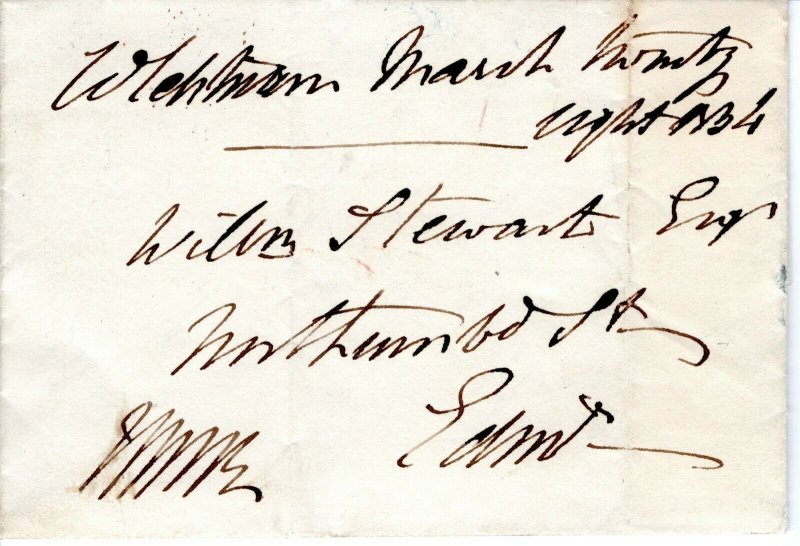 March Twenty
eight 1834
Willm Stewart Esqr
Northumbd St
Edinr